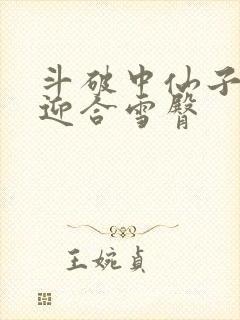 斗破中仙子
迎合雪臀
王婉贞